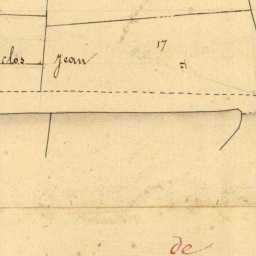 17
clos Jean
de